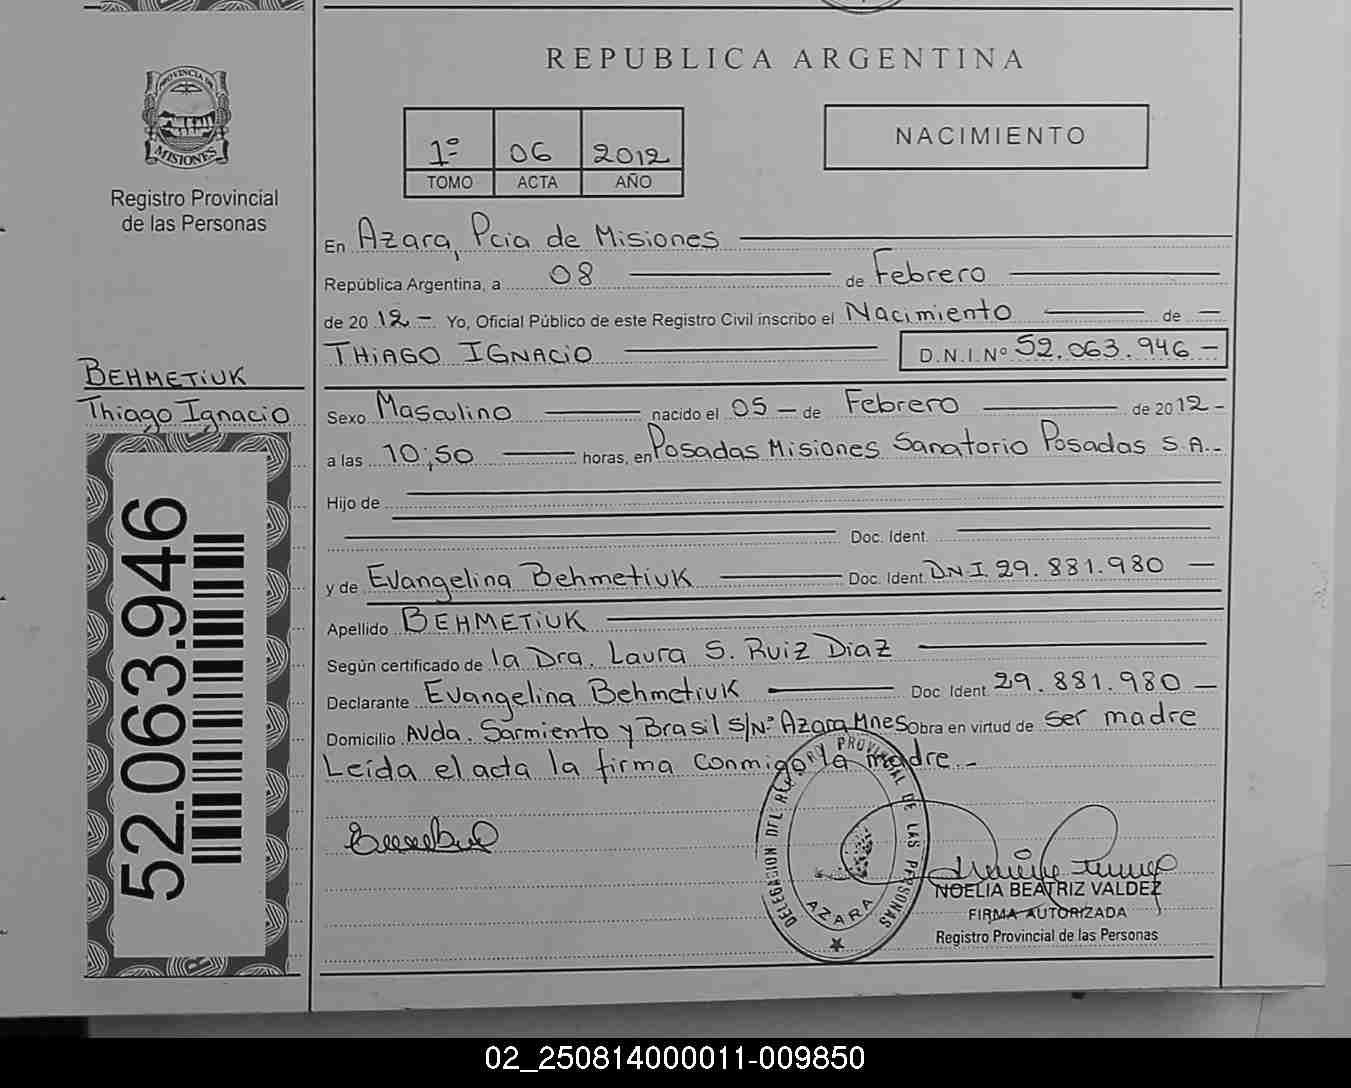 REPUBLICA ARGENTINA
PROVINCIA DE
MISIONES
Registro Provincial
de las Personas
1º 06 2012
TOMO ACTA AÑO
NACIMIENTO
En Azara, Pcia de Misiones
República Argentina, a 08 de Febrero
de 2012 - Yo, Oficial Público de este Registro Civil inscribo el Nacimiento de -
THIAGO IGNACIO D.N.I. Nº 52.063.946 -
BEHMETIUK
Thiago Ignacio
Sexo Masculino nacido el 05 - de Febrero de 2012 -
a las 10:50 horas, en Posadas Misiones Sanatorio Posadas S.A. -
Hijo de
Doc. Ident.
y de Evangelina Behmetiuk Doc. Ident. D.N.I. 29.881.980 -
Apellido BEHMETIUK
Según certificado de la Dra. Laura S. Ruiz Diaz
Declarante Evangelina Behmetiuk Doc. Ident. 29.881.980 -
Domicilio Avda. Sarmiento y Brasil S/Nº Azara Mnes Obra en virtud de ser madre
Leída el acta la firma conmigo la madre. -
52.063.946
DELEGACION DEL REG. PROVINCIAL DE LAS PERSONAS
AZARA
NOELIA BEATRIZ VALDEZ
FIRMA AUTORIZADA
Registro Provincial de las Personas
02_250814000011-009850